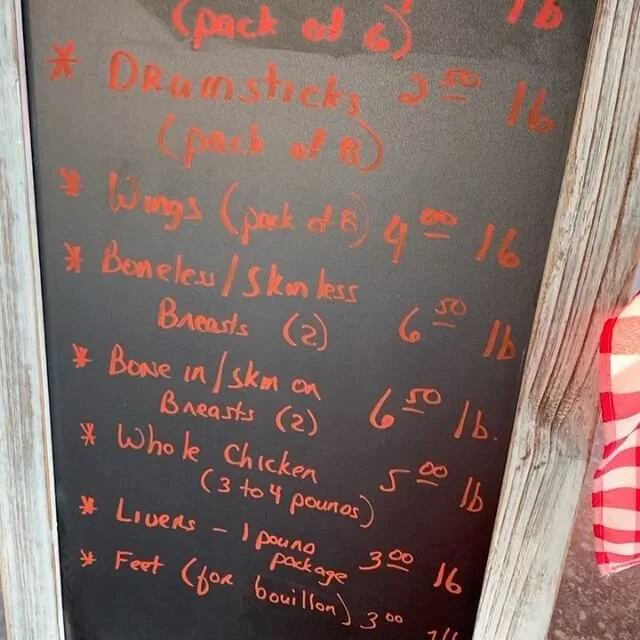 (pack of 6) lb
* Drumsticks 2 50 lb
(pack of 8)
* Wings (pack of 8) 4 00 lb
* Boneless/skinless
Breasts (2) 6 50 lb
* Bone in/skin on
Breasts (2) 6 50 lb.
* Whole Chicken
(3 to 4 pounds) 5 00 lb
* Livers - 1 pound
package 3 00 lb
* Feet (for bouillon) 3 00